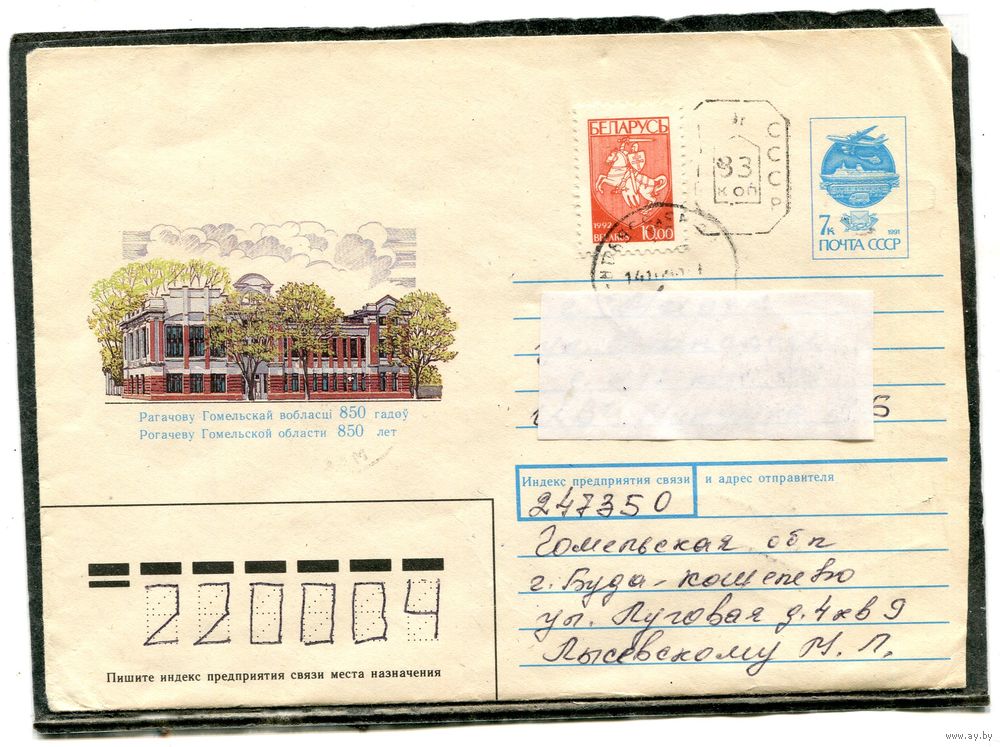 БЕЛАРУСЬ
1992 10.00
BELARUS
СССР
83
коп
7к
1991
ПОЧТА СССР
Рагачову Гомельскай вобласці 850 гадоў
Рогачеву Гомельской области 850 лет
Б
Индекс предприятия связи и адрес отправителя
247350
Гомельская обл
г. Буда-Кошелево
ул. Луговая д. 4 кв 9
Лысевскому М. П.
220004
Пишите индекс предприятия связи места назначения
www.ay.by